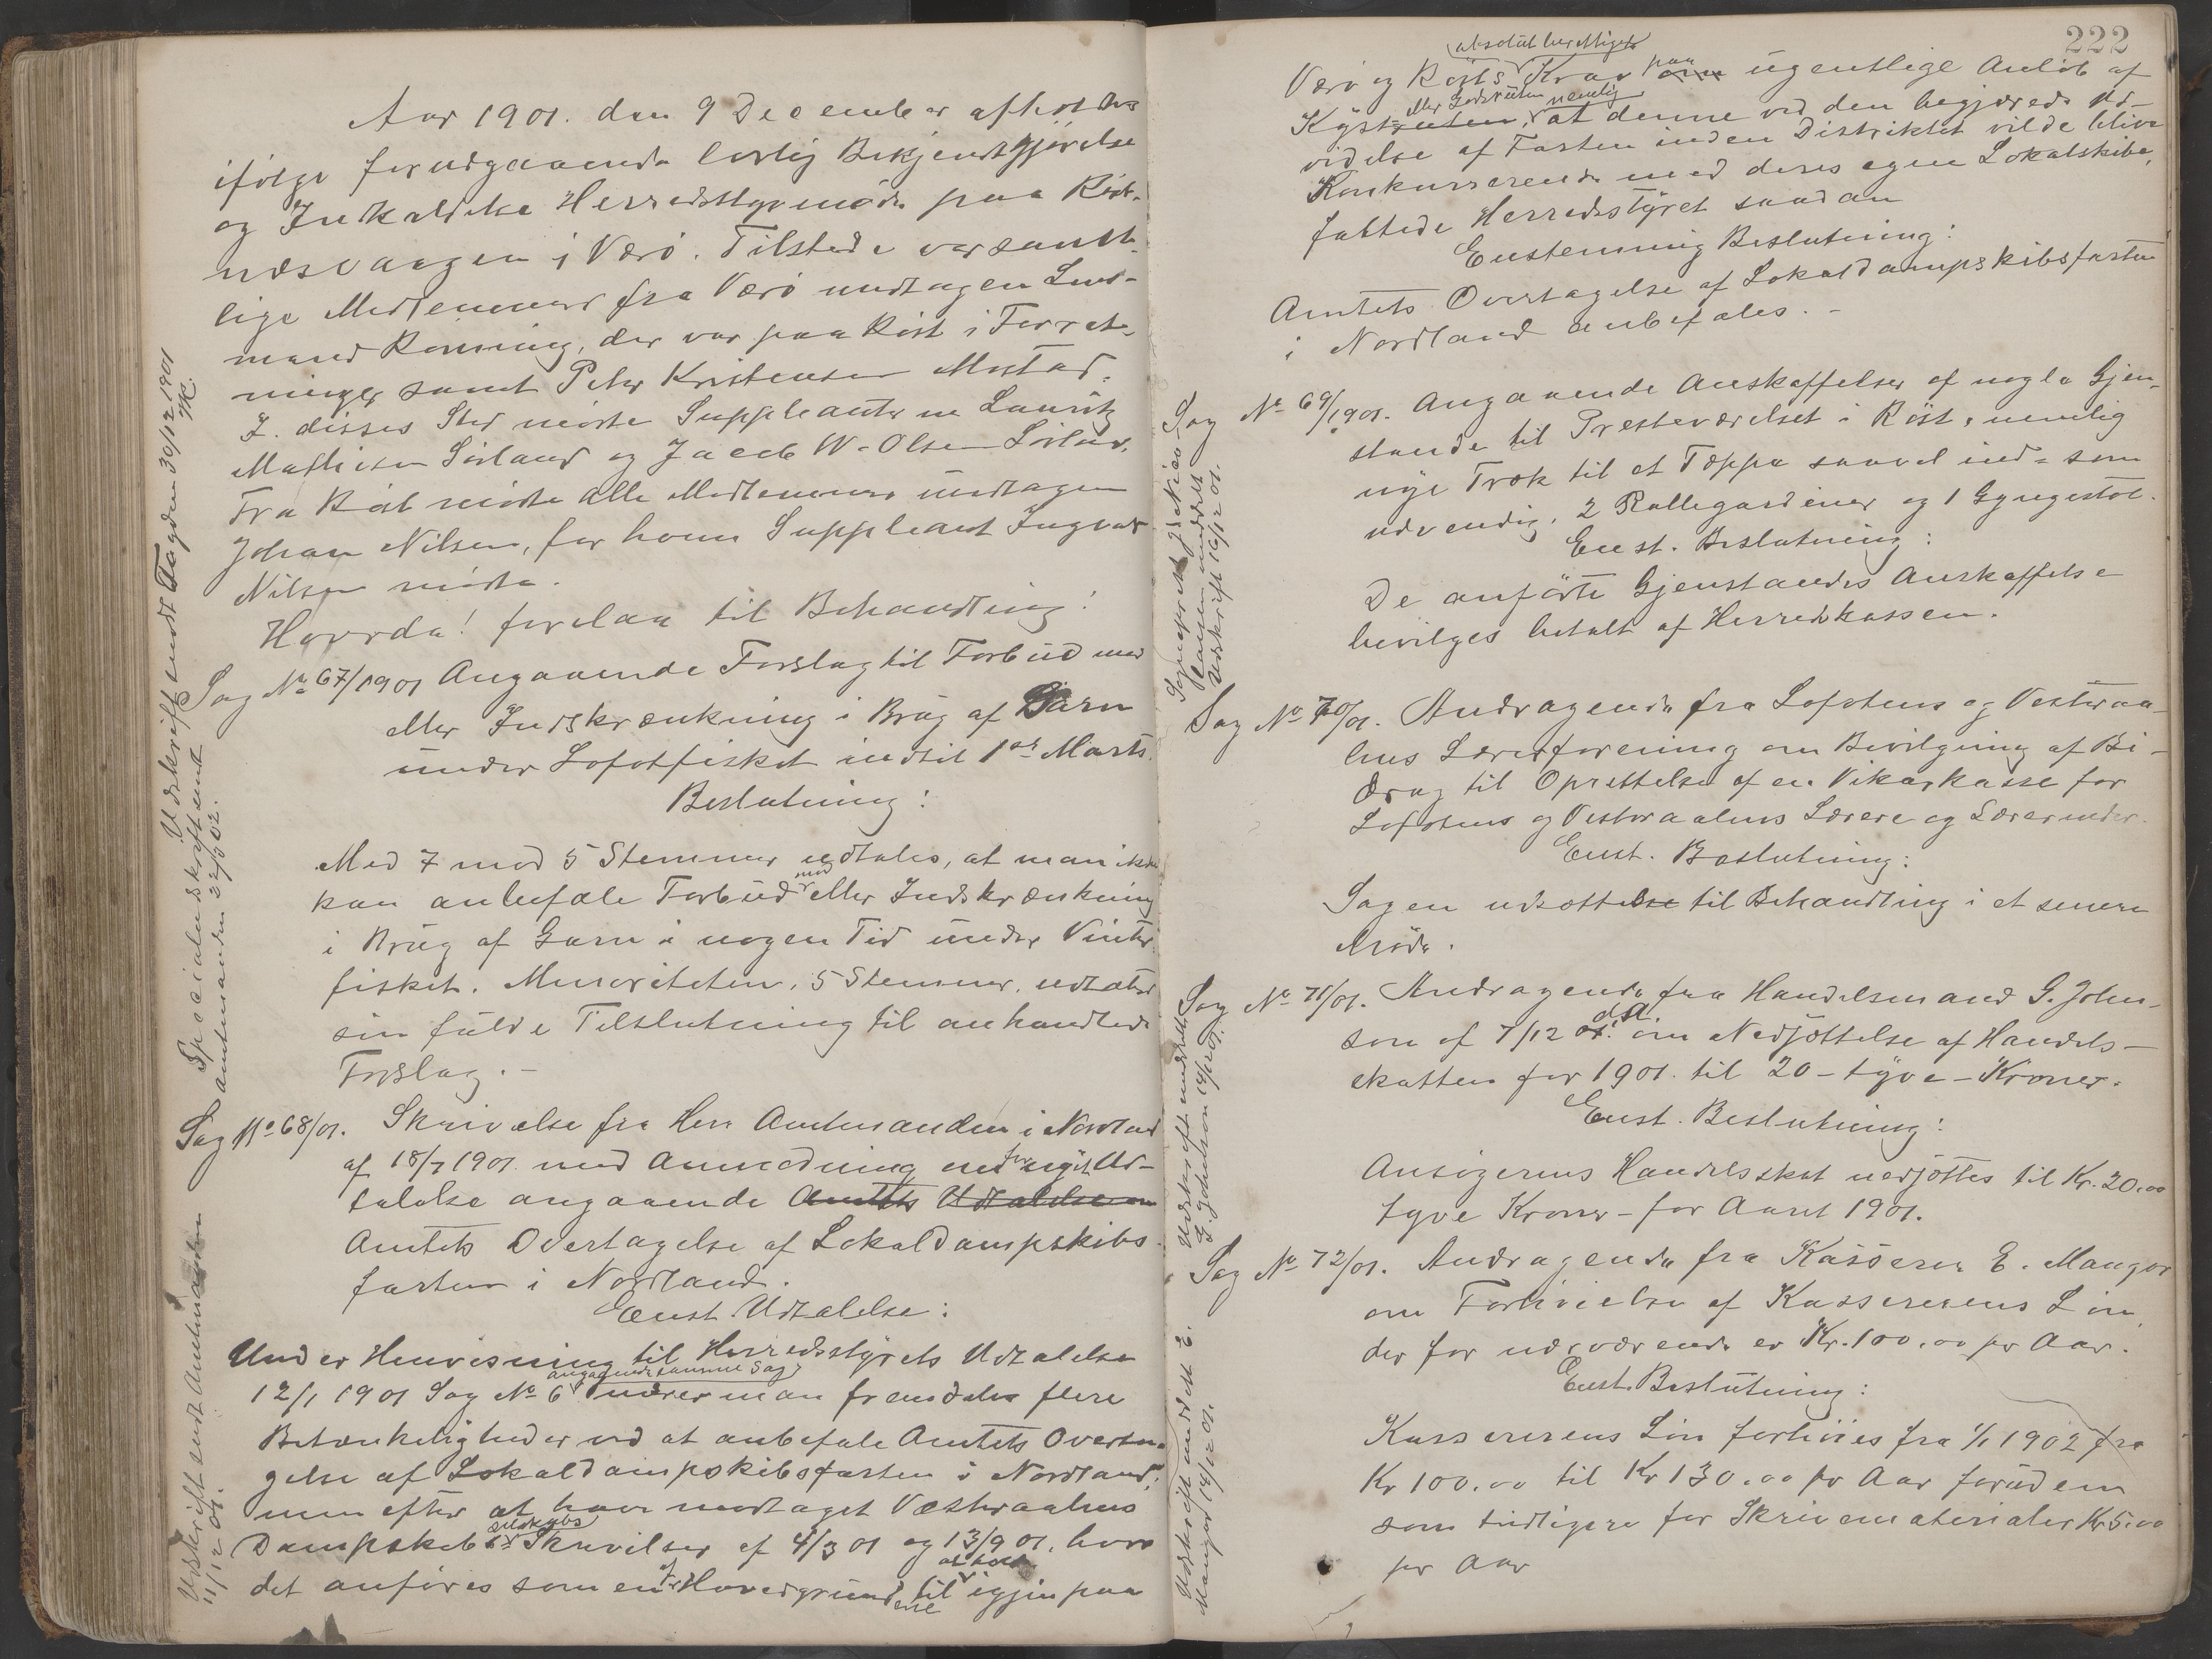 Aar 1901. den 9 December afholdtes
ifölge forudgaaende lovlig Bekjendtgjörelse
og Indkaldelse Herredsstyremöde paa Röst-
næsvaagen i Værö. Tilstede var samt-
lige Medlemmer fra Værö undtagen Lens-
mand Rönning, der var paa Röst i Forret-
ninger samt Peter Kristensen Mostad.
I disses Sted mödte Suppleanterne Lauritz
Mathisen Sörland og Jacob W. Olsen Sörland.
Fra Röst mödte alle Medlemmer undtagen
Johan Nilsen, for hvem Suppleant Ingvar
Nilsen mödte.
Hvorda! forelaa til Behandling:
Sag No 67/1901 Angaaende Forslag til Forbud mod
eller Indskrænkning i Brug af Garn
under Lofotfisket indtil 1ste Marts.
Beslutning:
Med 7 mod 5 Stemmer udtales, at man ikke
kan anbefale Forbud mod eller Indskrænkning
i Brug af Garn i nogen Tid under Vinter-
fisket. Minoriteten, 5 Stemmer, udtaler
sin fulde Tilslutning til anhandlede
Forslag.-
Sag No 68/01. Skrivelse fra Herr Amtmanden i Nordland
af 18/7 1901 med Anmodning om fornyet Ud-
talelse angaaende Amtets Udtalelse om
Amtets Overtagelse af Lokaldampskibs-
farten i Nordland.
Enst. Udtalelse:
Under Henvisning til Herredsstyrets Udtalelse
12/1 1901 Sag No 6 angaaende samme Sag nærer man fremdeles flere
Betænkeligheder ved at anbefale Amtets Overta-
gelse af Lokaldampskibsfarten i Nordland,
men efter at have modtaget Vesteraalens
Dampskibsselskabs Skrivelser af 4/3 01 og 13/9 01, hvor
det anföres som en af Hovedgrundene til at komme igjen paa
Udskrift sendt Fogden 30/12 1901
M.
Specialudskrift sendt
Amtmanden 22/5 02.
Udskrift sendt Amtmanden
11/12 01.
222
Værö og Röst's absolut berettigede Krav paa om ugentlige Anlöb af
Kystruten eller Godsruten nemlig at denne ved den begjærede Ud-
videlse af Farten inden Distriktet vilde blive
Konkurrerende med deres egne Lokalskibe,
fattede Herredsstyret saadan
Enstemmig Beslutning:
Amtets Overtagelse af Lokaldampskibsfarten
i Nordland anbefales.-
Sag No 69/1901. Angaaende Anskaffelse af nogle Gjen-
stande til Presteværelset i Röst, nemlig
nye Træk til et Tæppe saavel ind- som
udvendig, 2 Rullegardiner og 1 Gyngestol.
Enst. Beslutning:
De anförte Gjenstandes Anskaffelse
bevilges betalt af Herredskassen.
Sag No 70/01. Andragende fra Lofotens og Vesteraa-
lens Lærerforening om Bevilgning af Bi-
drag til Oprettelse af en Vikarkasse for
Lofotens og Vesteraalens Lærere og Lærerinder.
Enst. Beslutning:
Sagen udsættes til Behandling i et senere
Möde.
Sag No 71/01. Andragende fra Handelsmand G. John-
son af 7/12 01. d.A. om Nedsættelse af Handels-
skatten for 1901 til 20 - tyve - Kroner.
Enst. Beslutning:
Ansögerens Handelsskat nedsættes til Kr. 20.00
tyve Kroner - for Aaret 1901.
Sag No 72/01. Andragende fra Kasserer E. Mangor
om Forhöielse af Kassererens Lön,
der for nærværende er Kr. 100.00 pr Aar.
Enst. Beslutning:
Kassererens Lön forhöies fra 1/1 1902 fra
Kr 100.00 til Kr 130.00 pr Aar foruden
som tidligere for Skrivematerialer Kr 5.00
pr Aar
Udskrift 16/12 01.
Udskrift meddelt
G. Johnson 14/12 01.
Udskrift meddelt E.
Mangor 14/12 01.